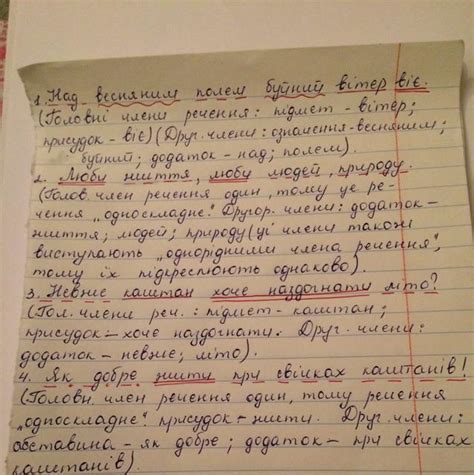 1. Над весняним полем буйний вітер віє.
(Головні члени речення: підмет - вітер;
присудок - віє) (Друг. члени: означення - весняним;
буйний; додаток - над; полем).
2. Люблю життя, люблю людей, природу.
(Голов. член речення один, тому це ре-
чення „односкладне". Другор. члени: додаток -
життя; людей; природу (ці члени також
виступають „однорідними члена речення",
тому їх підкреслюють однаково).
3. Невже каштан хоче наздогнати літо?
(Гол. члени реч.: підмет - каштан;
присудок - хоче наздогнати. Друг. члени:
додаток - невже; літо).
4. Як добре жити при свічках каштанів!
(Головн. член речення один, тому речення
„односкладне" присудок - жити. Друг. члени:
обставина - як добре; додаток - при свічках
каштанів).